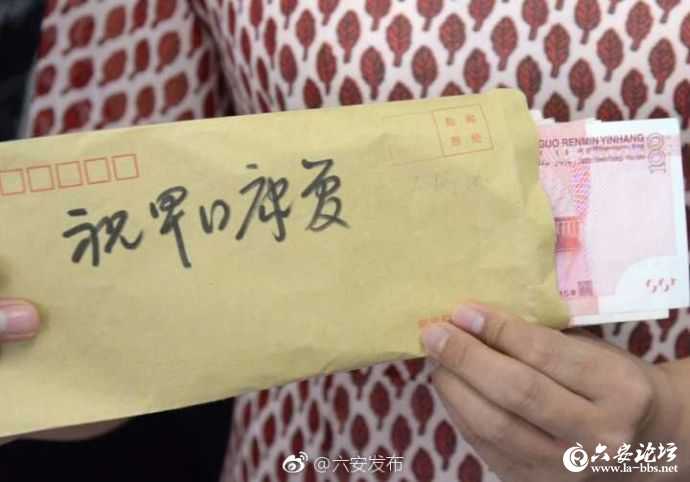 贴 邮
票 处
GUO RENMIN YINHANG
100
祝早日康复
@六安发布
六安论坛
www.la-bbs.net